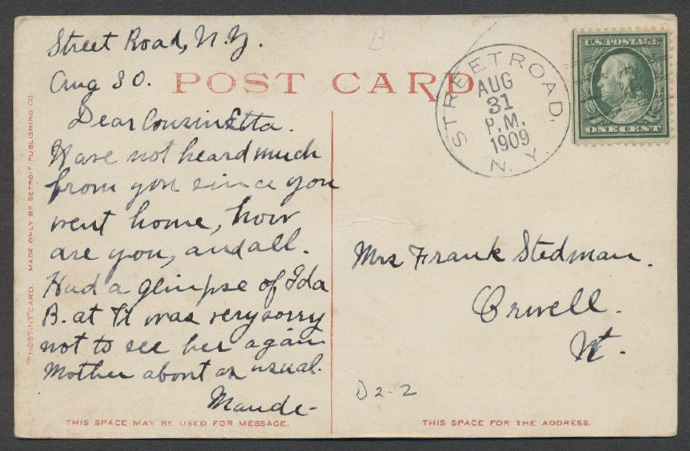 Street Road, N.Y.
Aug 30.
POST CARD
Dear Cousin Etta.
Have not heard much
from you since you
went home, how
are you, and all.
Had a glimpse of Ida
B. at Ti was very sorry
not to see her again
Mother about as usual.
Maude-
THIS SPACE MAY BE USED FOR MESSAGE.
"PHOSTINT" CARD. MADE ONLY BY DETROIT PUBLISHING CO.
B
STREET ROAD,
AUG
31
P.M.
1909
N.Y.
U.S. POSTAGE
ONE CENT
Mrs Frank Stedman.
Orwell.
Vt.
D2-2
THIS SPACE FOR THE ADDRESS.